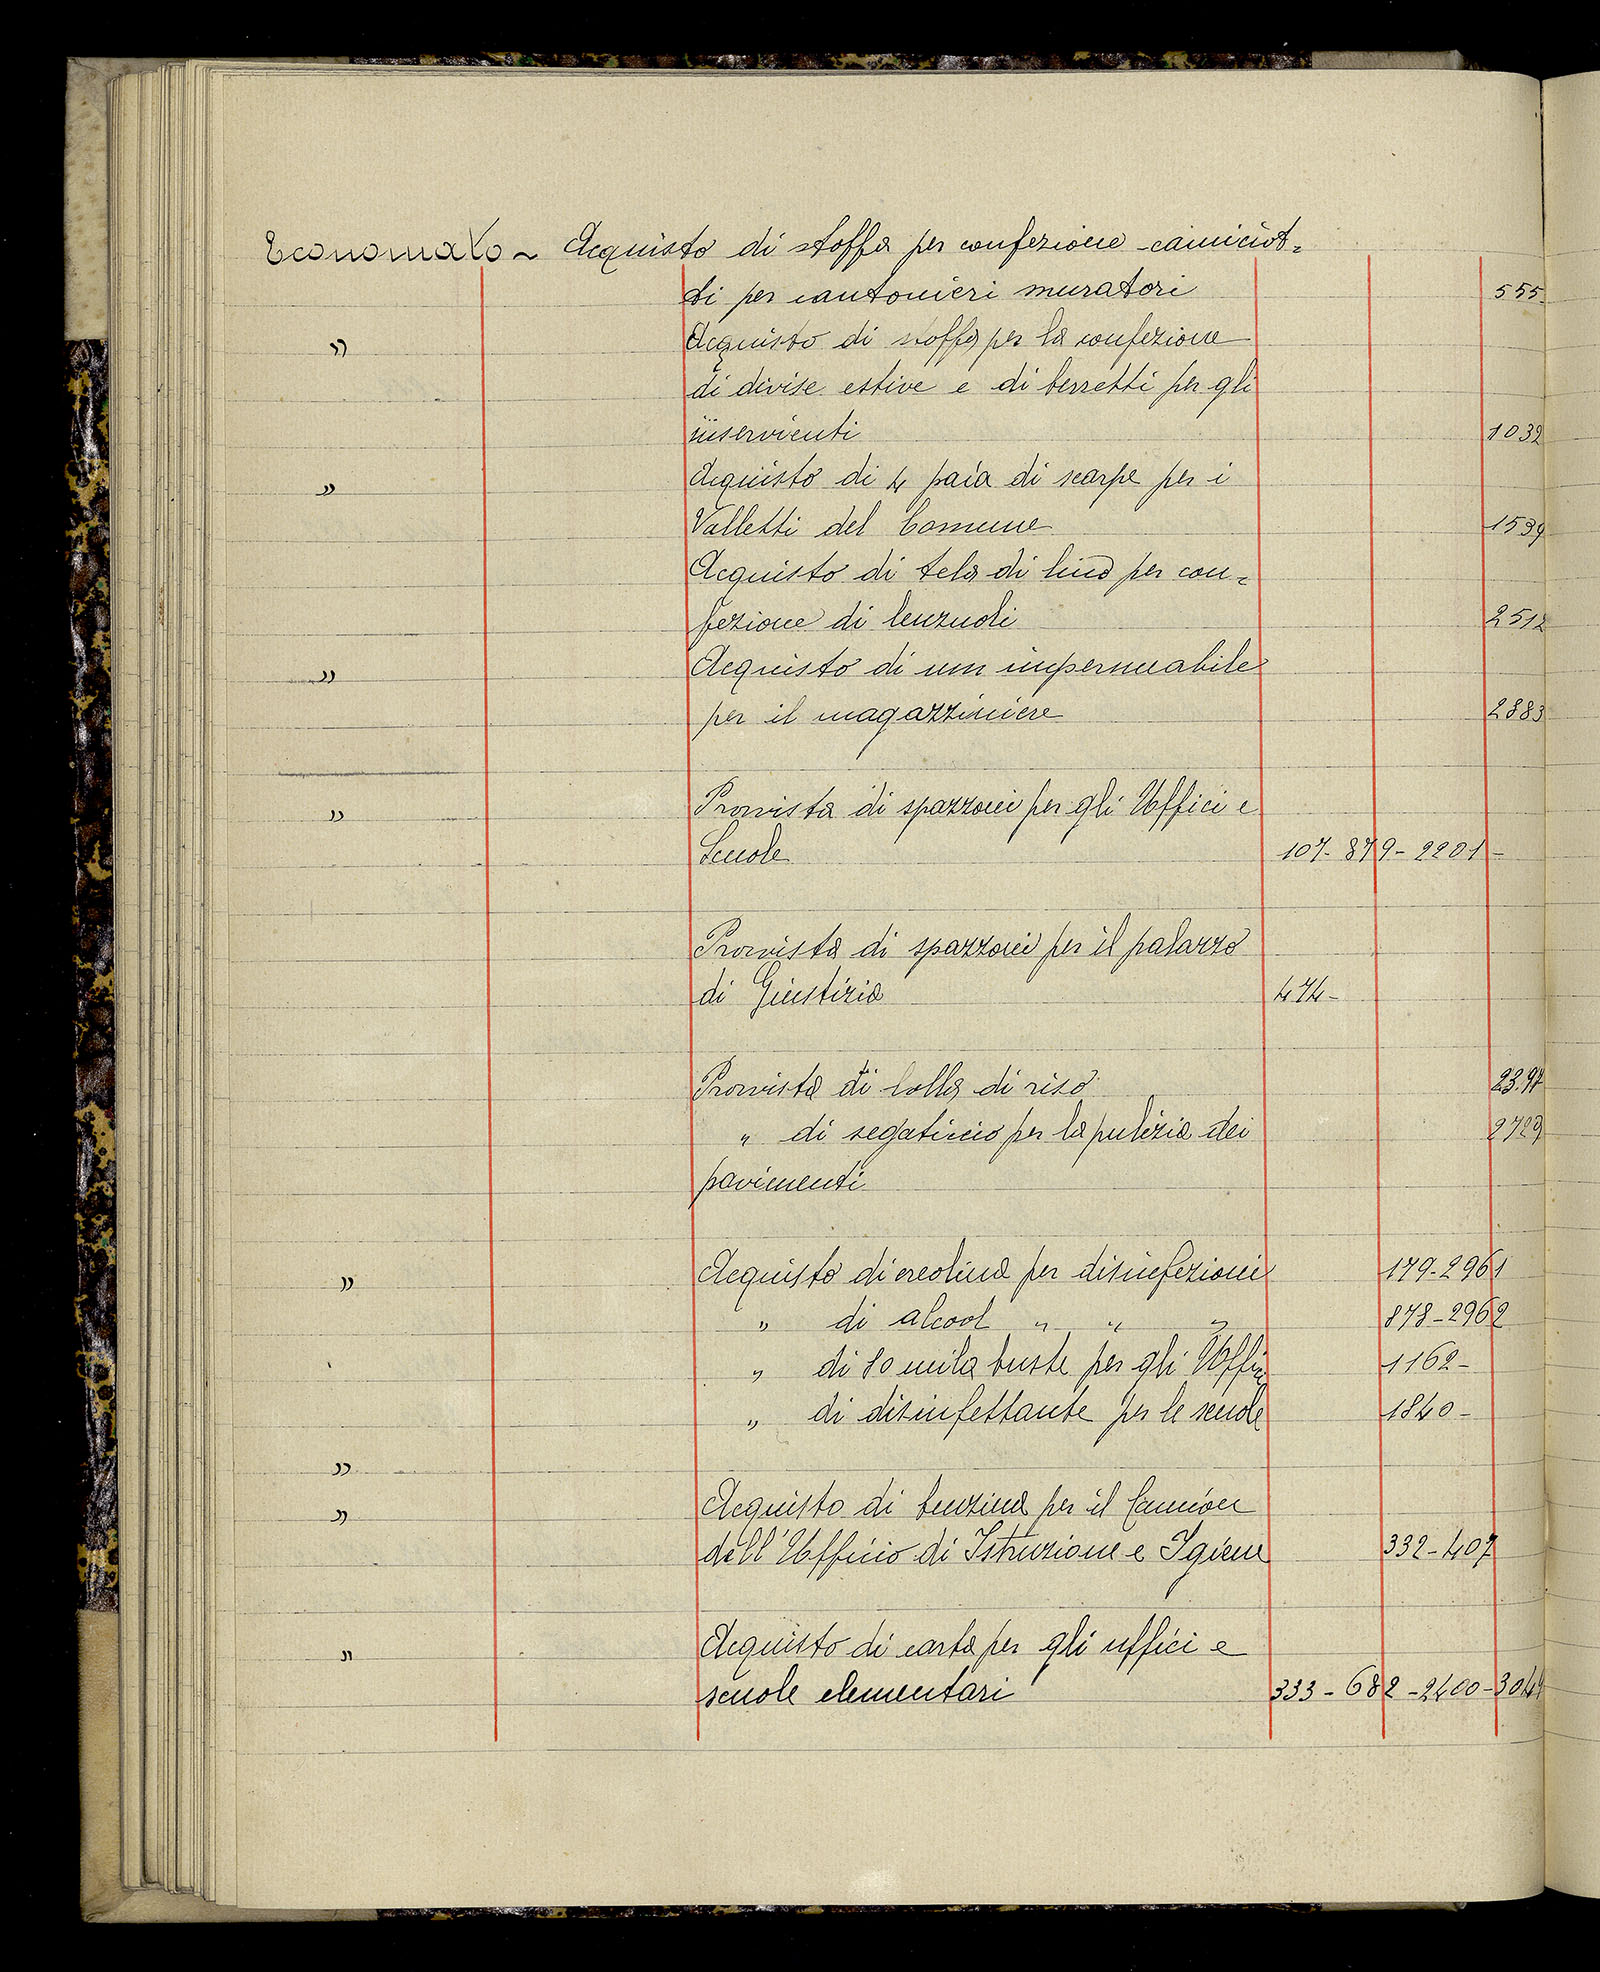 Economato ~ Acquisto di stoffa per confezione camiciot=
ti per cantonieri muratori 555
" Acquisto di stoffa per la confezione
di divise estive e di berretti per gli
inservienti 1032
" Acquisto di 4 paia di scarpe per i
Valletti del Comune 1539
Acquisto di tela di lino per con=
fezione di lenzuoli 2512
" Acquisto di un impermeabile
per il magazziniere 2883
" Provvista di spazzoni per gli Uffici e
Scuole 107-879-2201-
Provvista di spazzoni per il palazzo
di Giustizia 474-
Provvista di lolla di riso
" di segatura per la pulizia dei 2729
pavimenti
" Acquisto di creolina per disinfezioni 179-2961
" di alcool " " " 878-2962
" di 80 mila buste per gli Uffici 1162-
" di disinfettante per le scuole 1840-
"
" Acquisto di benzina per il Camion
dell'Ufficio di Istruzione e Igiene 332-407
" Acquisto di carta per gli uffici e
scuole elementari 333-682-2400-3044